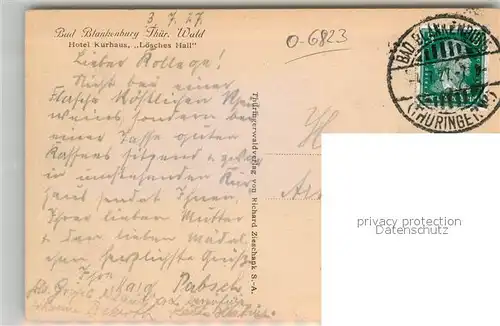 3. 7. 27
Bad Blankenburg Thür. Wald
Hotel Kurhaus, „Lösches Hall"
O-6823
Lieber Kollege!
Nicht bei einer
Flasche köstlichen Rhein
weines sondern bei
einer Tasse guten
Kaffees sitzend u. zwar
in umstehenden Kur
haus sendet Ihnen,
Ihrer lieben Mutter
u. den lieben Mädel
chen herzlichste Grüße
Ihr
Pabsch
Thüringerwaldverlag von Richard Zieschank S.-A.
BAD BLANKENBURG
(THÜRINGER W.)
H
privacy protection
Datenschutz